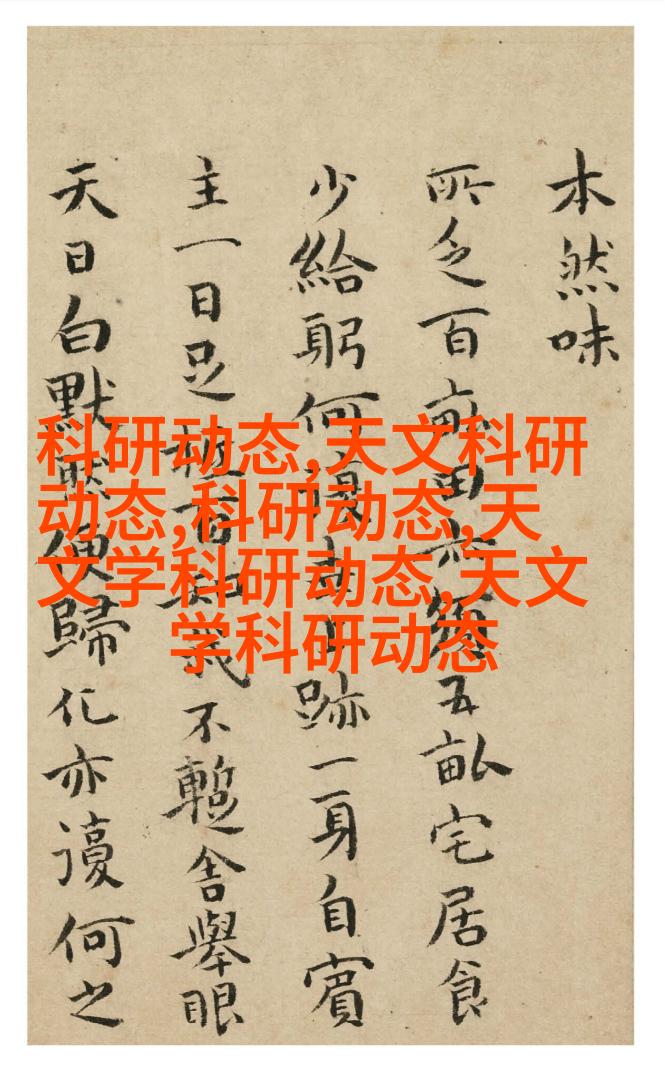 本然味
所乏百畝田五畝宅居食
少給躬何跡一身自賓
主一日足不暫舍舉眼
天日白默然便歸化亦何之
科研动态,天文科研
动态,科研动态,天
文学科研动态,天文
学科研动态